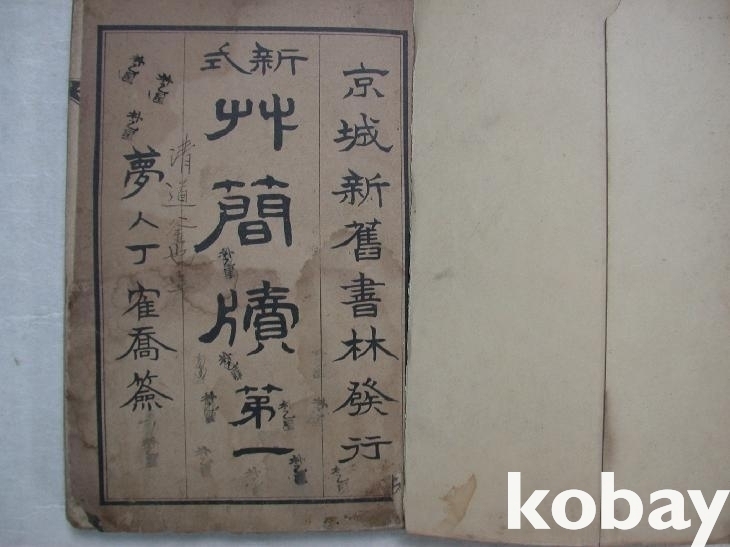 京城新舊書林發行
新式
艸簡牘第一
夢人丁寉喬簽
清道
kobay